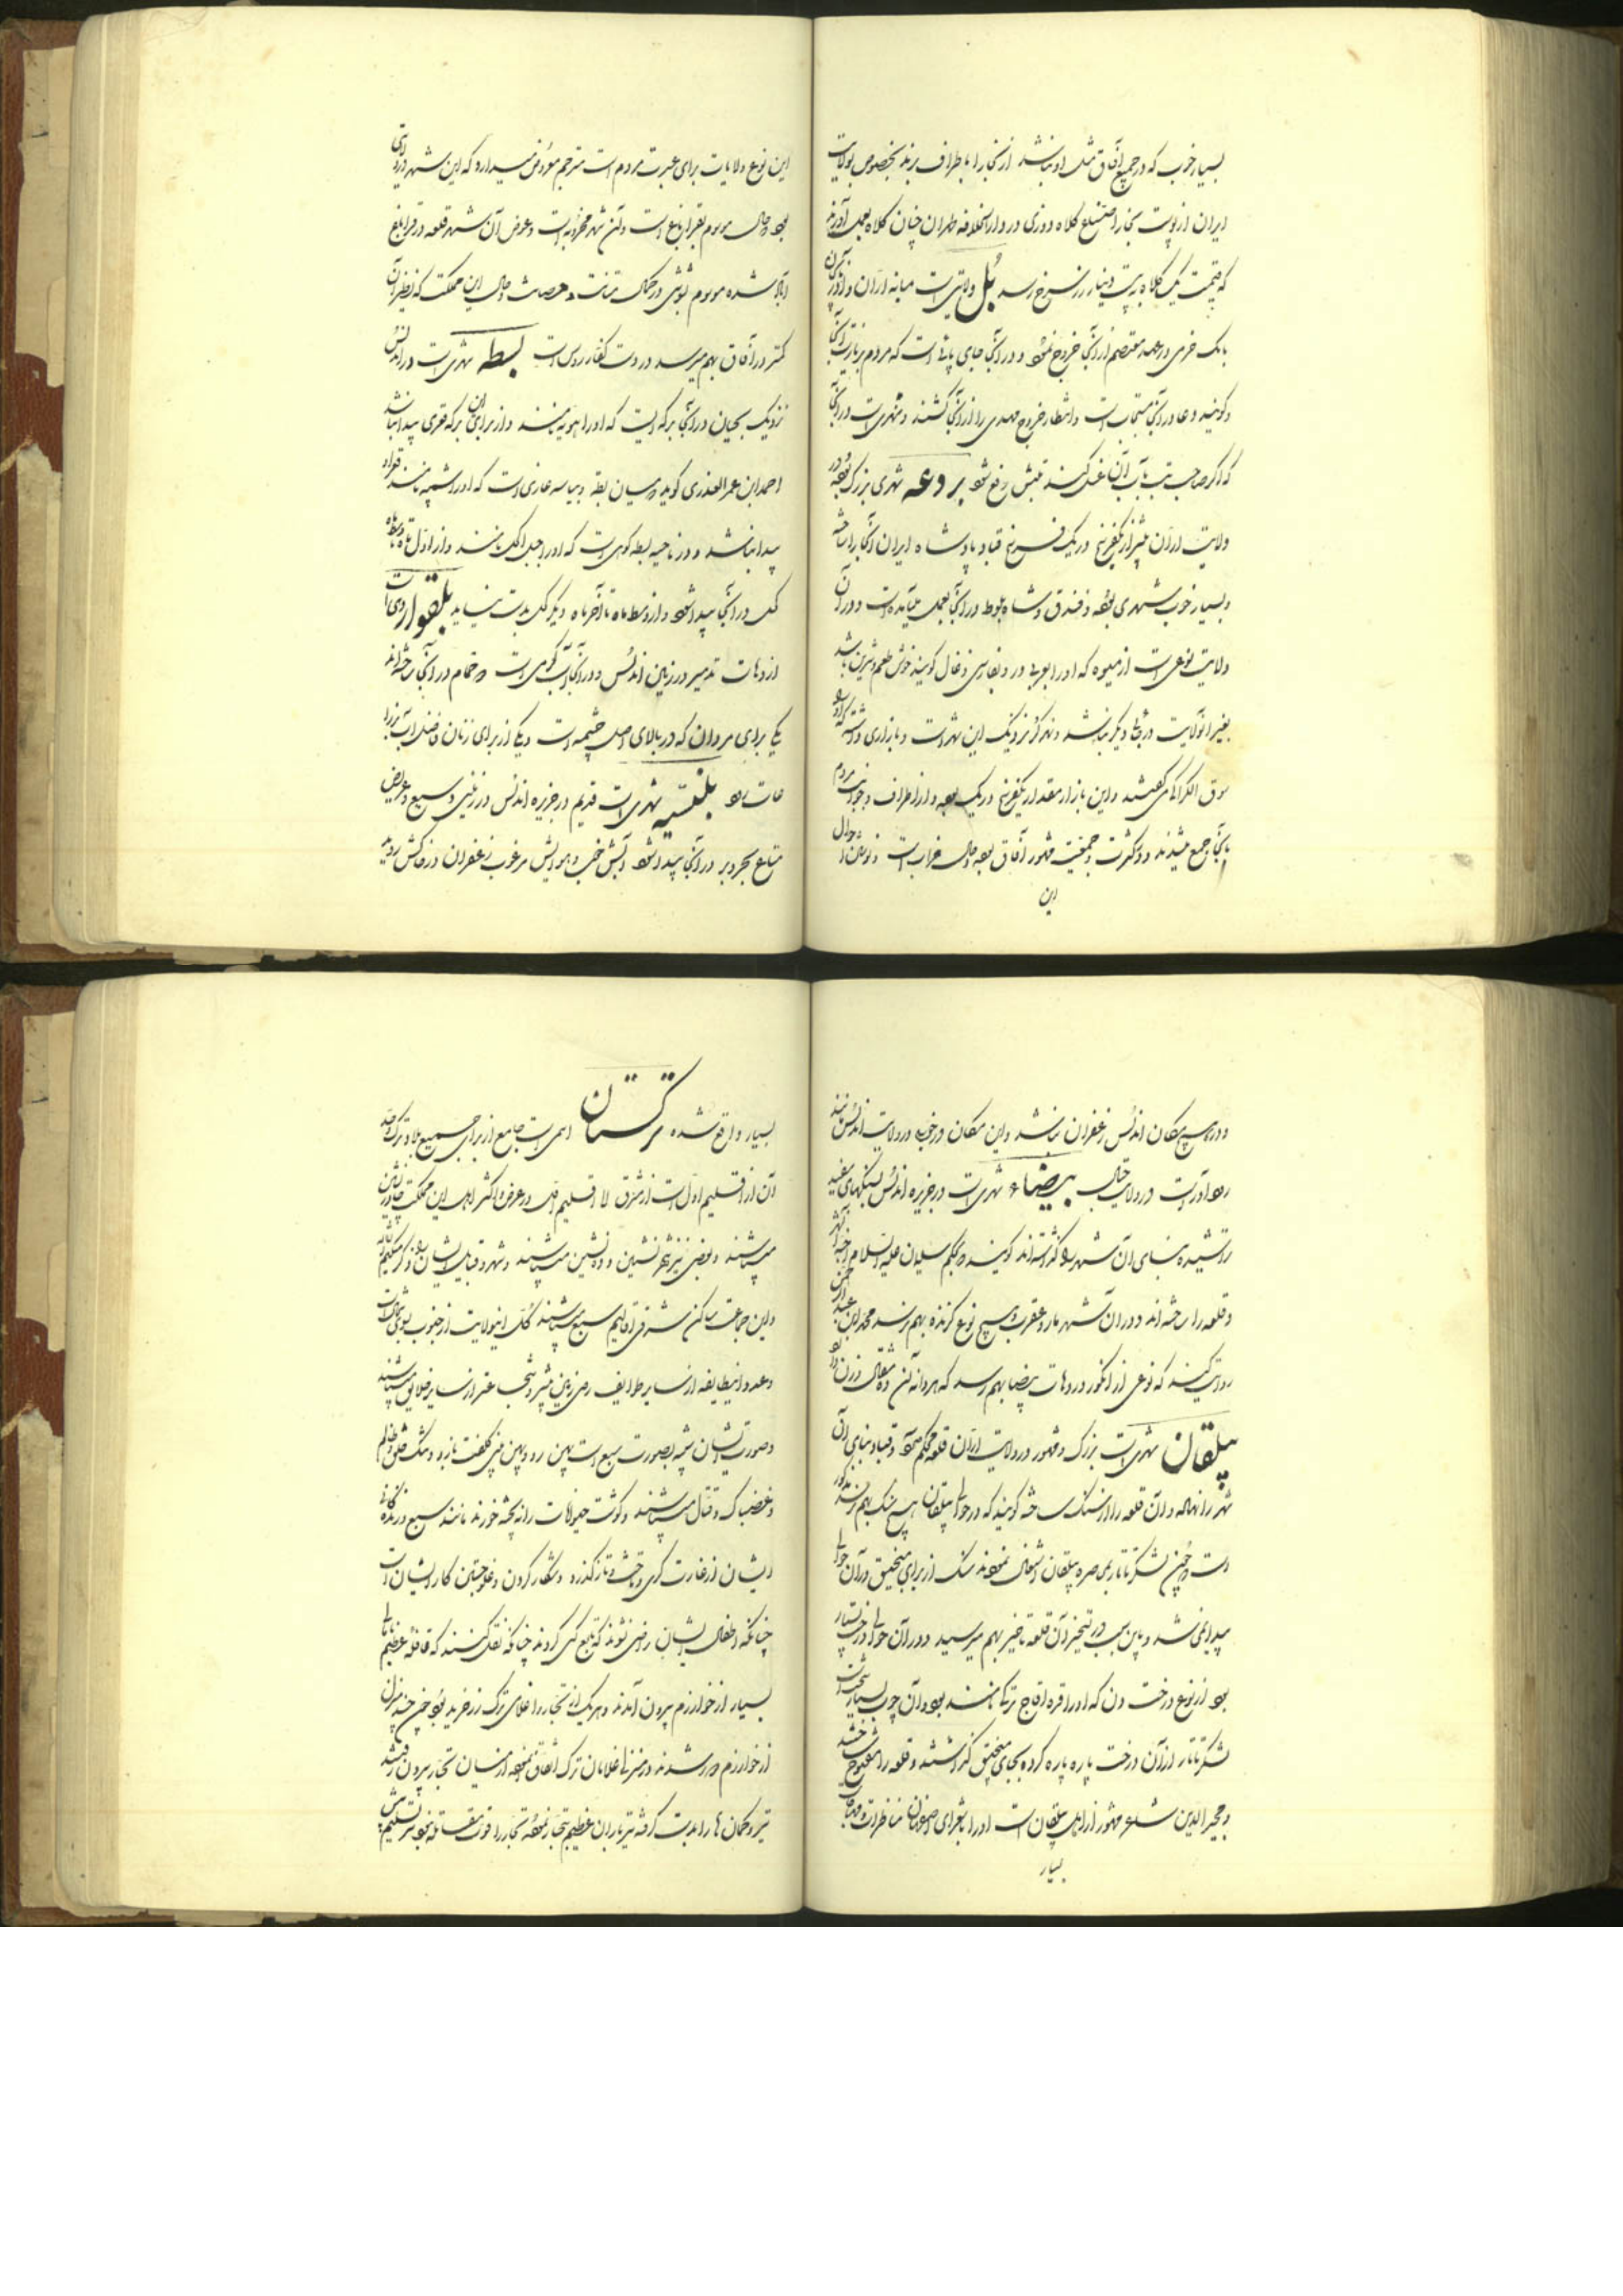 بسیار خوب که در جمیع آفاق مثل او نباشد از آنجا را باطراف برند بخصوص بولایت
ایران از پوست بخارا متصنع کلاه دوزی در دارالخلافه طهران چنان کلاه بعمل آورند
که قیمت یک کلاه به بیست دینار زر سرخ رسد بُل ولایتی است میانه ارّان و آذربایجان
بابک خرمی در عهد معتصم از آنجا خروج نمود و در آنجا جای پائی است که مردم بزیارت آنجا
و کویند دعا در آنجا مستجاب است و انتظار خروج مهدی را از آنجا کشند و نهری است در آنجا
که اگر صاحب تب بآب آن غسل کند تبش رفع شود بردعه شهری بزرگ بوده در
ولایت ارّان بیشتر از یکفرسخ در یک فرسخ قباد پادشاه ایران آنجا را ساخته
و بسیار خوب شهری بوده و فندق و شاه بلوط در آنجا بعمل میآمده است و در آن
ولایت نوعی است از میوه که او را بعربی و بفارسی ذغال کویند خوش طعم و شیرین باشد
بغیر آنولایت در جای دیگر نباشد و نهر کر نزدیک این شهر است و بازاری داشته که او را
سوق الکرکی میگفتند و این بازار مقدار یکفرسخ در یک بوده و از اطراف و جوانب مردم
بآنجا جمع میشدند و در کثرت و جمعیت مشهور آفاق بوده و حال خراب است
این
این نوع ولایات برای عبرت مردم است مترجم معروض میدارد که این شهر در ولایتی
بوده و حال موسوم بقراباغ است و آن شهر مخروبه است و عوض آن شهر قلعه در قراباغ
آباد شده موسوم بشوشی در کمال متانت و حصانت و حال این مملکت که نظیر آن
کمتر در آفاق بهم میرسد در دست کفار روس است بسطه شهری است در اندلس
نزدیک بجیان در آنجا برکه ایست که او را هوته نامند و از برای آن برکه قعری پیدا نباشد
احمد ابن عمر العذری کوید در میان بسطه و بیاسه غاری است که او را شیمه نامند قعر او
پیدا نباشد و در ناحیه بسطه کوهی است که او را جبل الکحل نامند و از اول ماه تا وسط ماه
کحل در آنجا پیدا شود و از وسط ماه تا آخر ماه دیگر کحل بدست نیاید بلقوار دهی است
از دهات تدمیر در زمین اندلس و در آنجا آب گرمی است دو حمام در آنجا ساخته اند
یکی برای مردان که در بالای اصل چشمه است و یکی از برای زنان و فضل آب
بلنسیه شهری است قدیم در جزیره اندلس در زمینی وسیع و عریض
متاع بحر و بر در آنجا پیدا شود آبش خوب و هوایش مرغوب زعفران در خاکش روید
و در هیچ مکان اندلس زعفران نباشد و این مکان در خوبی در ولایت اندلس مانند
رودآور است در ولایت جبال بیضاء شهری است در جزیره اندلس بسنگهای سفید
تراشیده بنای آن شهر را گذاشته اند کویند بحکم سلیمان علیه السلام اجنه آن شهر
و قلعه را ساخته اند و در آن شهر مار و عقرب و هیچ نوع گزنده بهم نرسد محمد ابن عبدالرحمن
روایت کند که نوعی از انگور در دهات بیضا بهم رسد که هر دانه آن ده مثقال وزن دارد
بیلقان شهری است بزرگ و مشهور در ولایت ارّان قلعه محکم داشته و قباد بنای آن
شهر را نهاده و آن قلعه را از سنگ ساخته کویند که در حوالی بیلقان هیچ سنگ بهم نرسد
است و چون لشکر تاتار بمحاصره بیلقان اشتغال نمودند سنگ از برای منجنیق در آن حوالی
پیدا نمی شد و باین سبب در تسخیر آن قلعه تأخیر بهم میرسید و در آن حوالی درخت بسیار
بود از نوع درخت دن که او را قره اقاج ترکی نامند بود و آن چوب بسیار سخت است
لشکر تاتار از آن درخت پاره پاره کرده بجای منجنیق گذاشتند و قلعه را مفتوح ساختند
و مجیر الدین شاعر مشهور از اهل بیلقان است او را با شعرای اصفهان مناظرات
بسیار
بسیار واقع شده ترکستان اسمی است جامع از برای جمیع بلاد ترک و حد
آن از اقلیم اول است از مشرق الی اقلیم در عرض و اکثر اهل این مملکت چادرنشین
میباشند و بعضی نیز شهرنشین و ده نشین میباشند
و این جماعت ساکن مشرق اقالیم سبع میباشند کل اینولایت از جنوب تا شمال است
و عدد اینطایفه از سایر طوایف روی زمین بیشتر و شجاع تر از سایر خلایق میباشند
و صورت ایشان شبیه بصورت سبع است پهن رو و پهن بینی کلفت بازو و تنگ خلق و ظالم
و غضبناک و قتال میباشند و گوشت حیوانات را نه پخته خورند مانند سبع درنده
ایشان از غارت گری و تاخت و تاز گذرد و شکار کردن و غلو جستن کار ایشان است
چنانکه اطفال ایشان راضی نشوند که تابع کسی گردند چنانکه نقل کنند که قافله عظیم
بسیار از خوارزم بیرون آمدند و هر یک از تجار را غلامی ترک زرخرید بوده چون چند منزل
از خوارزم دور شدند در منزلی غلامان ترک اتفاق نموده از میان تجار بیرون رفتند
تیر و کمان ها را بدست گرفته تیرباران عظیم بتجار نموده تجار را قوت مقاومت نبود